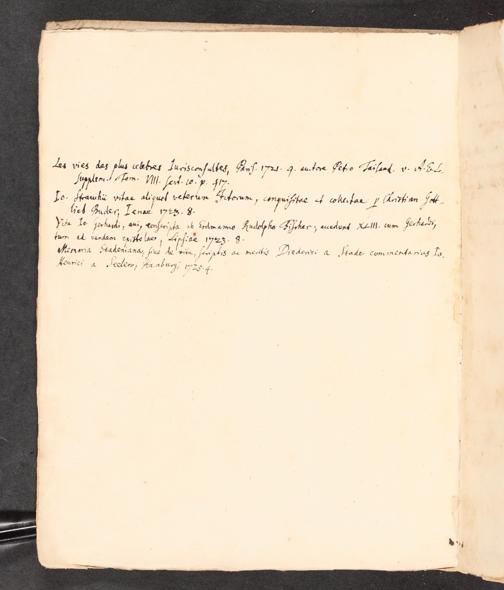 Les vies des plus celebres Jurisconsultes, Paris. 1721. 4. autore Petro Taisand. v. A. E. L.
Supplem. Tom. VIII. sect. 10. p. 417.
Io. Strauchii vitae aliquot veterum Ictorum, conquisitae et collectae p Christian Gott-
lieb Buder, Ienae 1723. 8.
Vita Io gerhardi, conscripta ab Erdmanno Rudolpho Fischero, accedunt XLIII. cum Gerhardi,
tum ad eundem epistolae, Lipsiae 1723. 8.
Memoria Stadeniana, sive de vita, scriptis ac meritis Diederici a Stade commentarius Io.
Henrici a Seelen, Hamburgi 1725. 4.